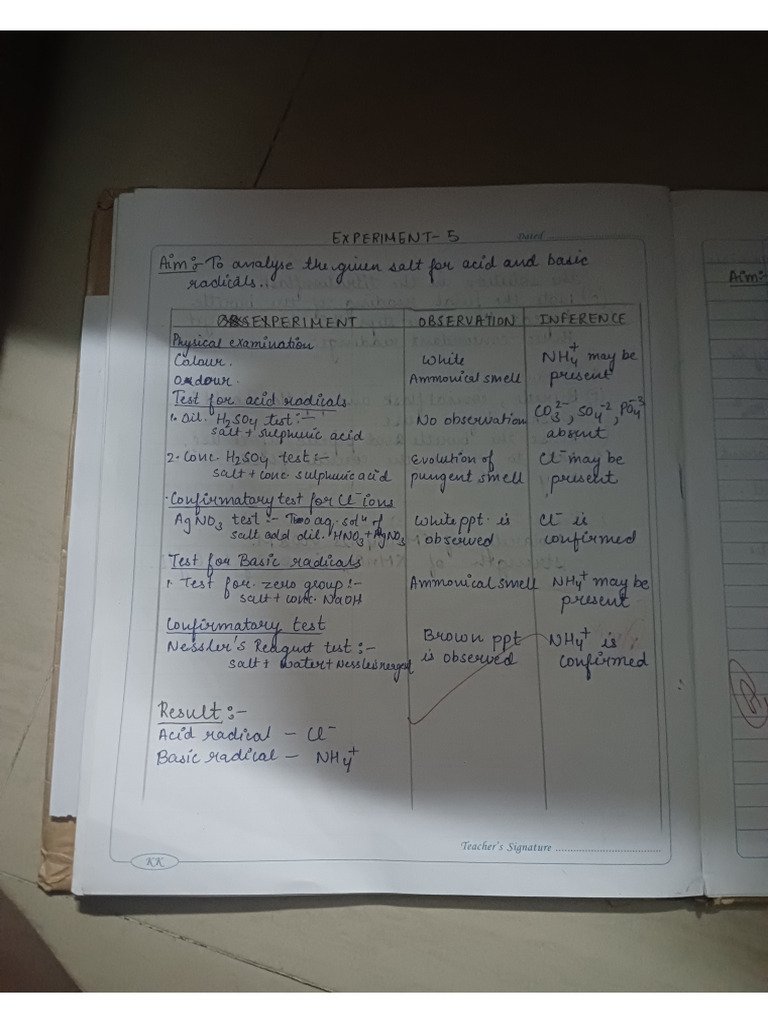 EXPERIMENT-5
Dated
Aim:- To analyse the given salt for acid and basic
radicals.
EXPERIMENT OBSERVATION INFERENCE
Physical examination
Colour. White NH4+ may be
Ondour. Ammonical smell present
Test for acid radicals
1. Dil. H2SO4 test:- No observation CO3^2-, SO4^-2, PO4^-3
salt + sulphuric acid absent
2. Conc. H2SO4 test:- Evolution of Cl- may be
salt + conc. sulphuric acid pungent smell present
Confirmatory test for Cl- ions
AgNO3 test:- To aq. soln of White ppt. is Cl- is
salt add dil. HNO3 + AgNO3 observed confirmed
Test for Basic radicals
1. Test for zero group:- Ammonical smell NH4+ may be
salt + conc. NaOH present
Confirmatory test
Nessler's Reagent test:- Brown ppt NH4+ is
salt + water + Nessler's reagent is observed confirmed
Result:-
Acid radical - Cl-
Basic radical - NH4+
Teacher's Signature
KK
Aim:-